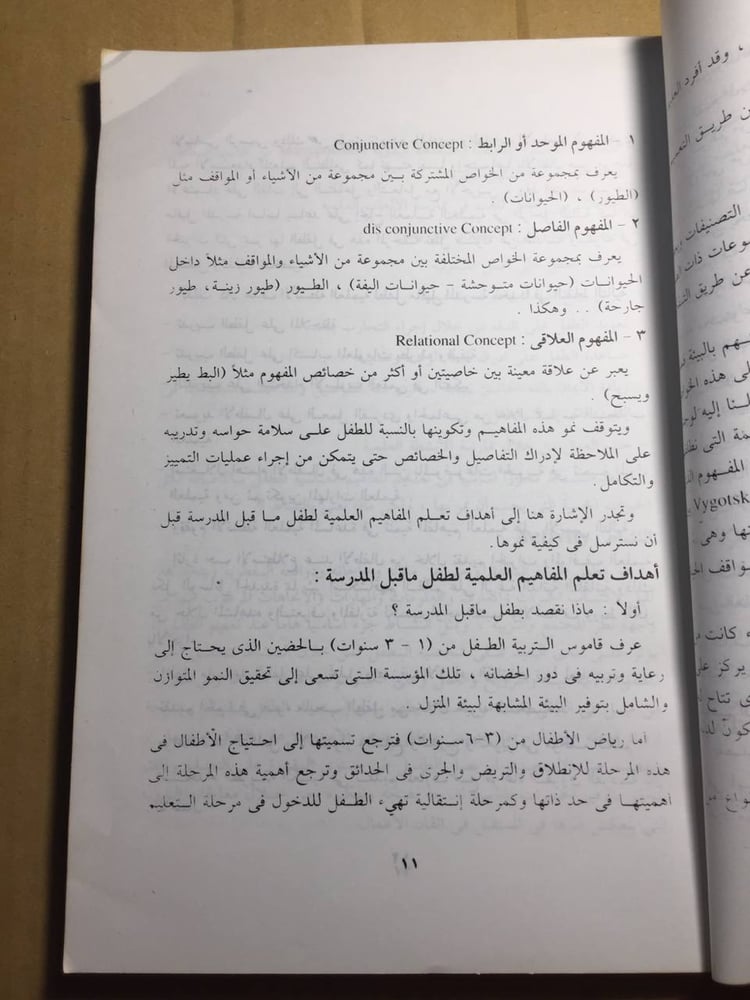 ١ - المفهوم الموحد أو الرابط : Conjunctive Concept
يعرف بمجموعة من الخواص المشتركة بين مجموعة من الأشياء أو المواقف مثل
(الطيور) ، (الحيوانات) .
٢ - المفهوم الفاصل : dis conjunctive Concept
يعرف بمجموعة الخواص المختلفة بين مجموعة من الأشياء والمواقف مثلاً داخل
الحيوانات (حيوانات متوحشة - حيوانات اليفة) ، الطيور (طيور زينة، طيور
جارحة) . . وهكذا .
٣ - المفهوم العلاقى : Relational Concept
يعبر عن علاقة معينة بين خاصيتين أو أكثر من خصائص المفهوم مثلاً (البط يطير
ويسبح) .
ويتوقف نمو هذه المفاهيم وتكوينها بالنسبة للطفل على سلامة حواسه وتدريبه
على الملاحظة لإدراك التفاصيل والخصائص حتى يتمكن من إجراء عمليات التمييز
والتكامل .
وتجدر الإشارة هنا إلى أهداف تعلم المفاهيم العلمية لطفل ما قبل المدرسة قبل
أن نسترسل فى كيفية نموها.
أهداف تعلم المفاهيم العلمية لطفل ماقبل المدرسة :
أولاً : ماذا نقصد بطفل ماقبل المدرسة ؟
عرف قاموس التربية الطفل من (١ - ٣ سنوات) بالحضين الذى يحتاج إلى
رعاية وتربيه فى دور الحضانه ، تلك المؤسسة التى تسعى إلى تحقيق النمو المتوازن
والشامل بتوفير البيئة المشابهة لبيئة المنزل .
أما رياض الأطفال من (٣-٦ سنوات) فترجع تسميتها إلى احتياج الأطفال فى
هذه المرحلة للإنطلاق والتريض والجرى فى الحدائق وترجع أهمية هذه المرحلة إلى
أهميتها فى حد ذاتها وكمرحلة إنتقالية تهيء الطفل للدخول فى مرحلة التعليم
١١
، وقد أفرد
ن طريق
التصنيفات
عن طريق
هم بالبيئة
لى هذه
لنا إليه
التى
المفهوم
Vygotsk
تها وهى
مواقف
، كانت
يركز
ى تتاح